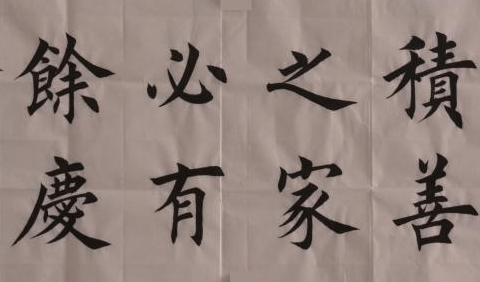 積善
之家
必有
餘慶